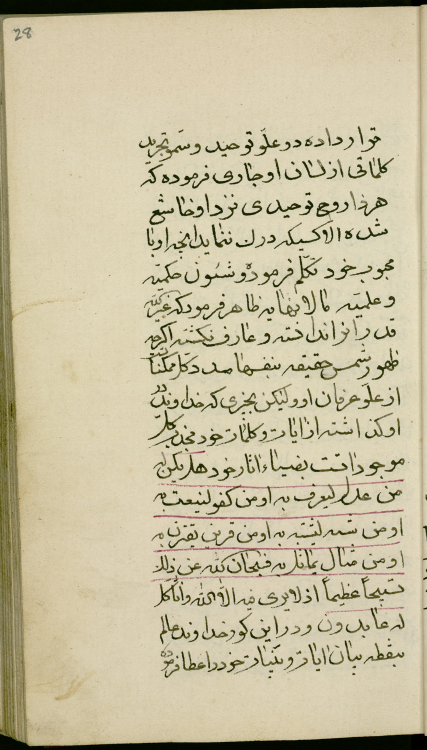 28
قرار داده در علو توحید و سمو تجرید
کلماتی از لسان او جاری فرموده که
هر ذا روح توحیدی نزد او خاشع
شده الا کسیکه درک ننماید انچه او با
محبوب خود تکلم فرموده و شئون حکمیه
و علمیه مالانهایه ظاهر فرمود که غیر الله
قدر انرا نداخته و عارف نگشته اگرچه
ظهور شمس حقیقة بنفسها صد دکل ممکنات
از علو عرفان او ولیکن بجزی که خداوند در
او گذاشته از ایات و کلمات خود مجذب کل
موجودات بضیاء اثار خود هل یکن له
من عدل لیعرف به او من کفو لینعت به
او من شبه لیشبه به او من قرین یقترن به
او من مثال یماثل به فسبحان الله عن ذلک
تسبیحا عظیما اذ لا یری فیه الا الله وانا کل
له عابدون و در این کور خداوند عالم
بنقطه بیان ایات و بینات خود را عطا فرموده